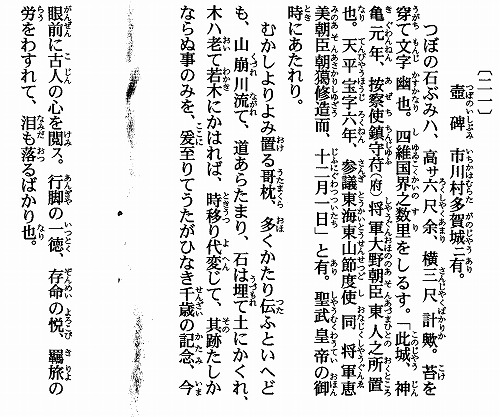 〔二一〕
壺碑 市川村多賀城ニ有。
つぼの石ぶみハ、高サ六尺余、横三尺計歟。苔を
穿て文字幽也。四維国界之数里をしるす。「此城、神
亀元年、按察使鎮守苻(府)将軍大野朝臣東人之所置
也。天平宝字六年、参議東海東山節度使同将軍恵
美朝臣朝獦修造而、十二月一日」と有。聖武皇帝の御
時にあたれり。
むかしよりよみ置る哥枕、多くかたり伝ふといへど
も、山崩川流て、道あらたまり、石は埋て土にかくれ、
木ハ老て若木にかはれば、時移り代変じて、其跡たしか
ならぬ事のみを、爰至りてうたがひなき千歳の記念、今
眼前に古人の心を閲ス。行脚の一徳、存命の悦、羈旅の
労をわすれて、泪も落るばかり也。